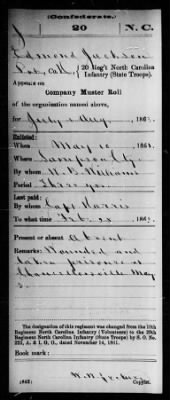 (Confederate.)
J 20 N. C.
Edmond Jackson
Pvt, Co. , 20 Reg't North Carolina
Infantry (State Troops).
Appears on
Company Muster Roll
of the organization named above,
for July & Aug, 186
Enlisted:
When May 10, 186
Where Sampson Co.
By whom
Period Three yrs.
Last paid:
By whom Capt Harris
To what time 186
Present or absent Absent
Remarks: Wounded and
taken prisoner at
Chancellorsville May
3.
The designation of this regiment was changed from the 10th
Regiment North Carolina Infantry (Volunteers) to the 20th
Regiment North Carolina Infantry (State Troops) by S. O. No.
222, A. & I. G. O., dated November 14, 1861.
Book mark:
(642)
Copyist.